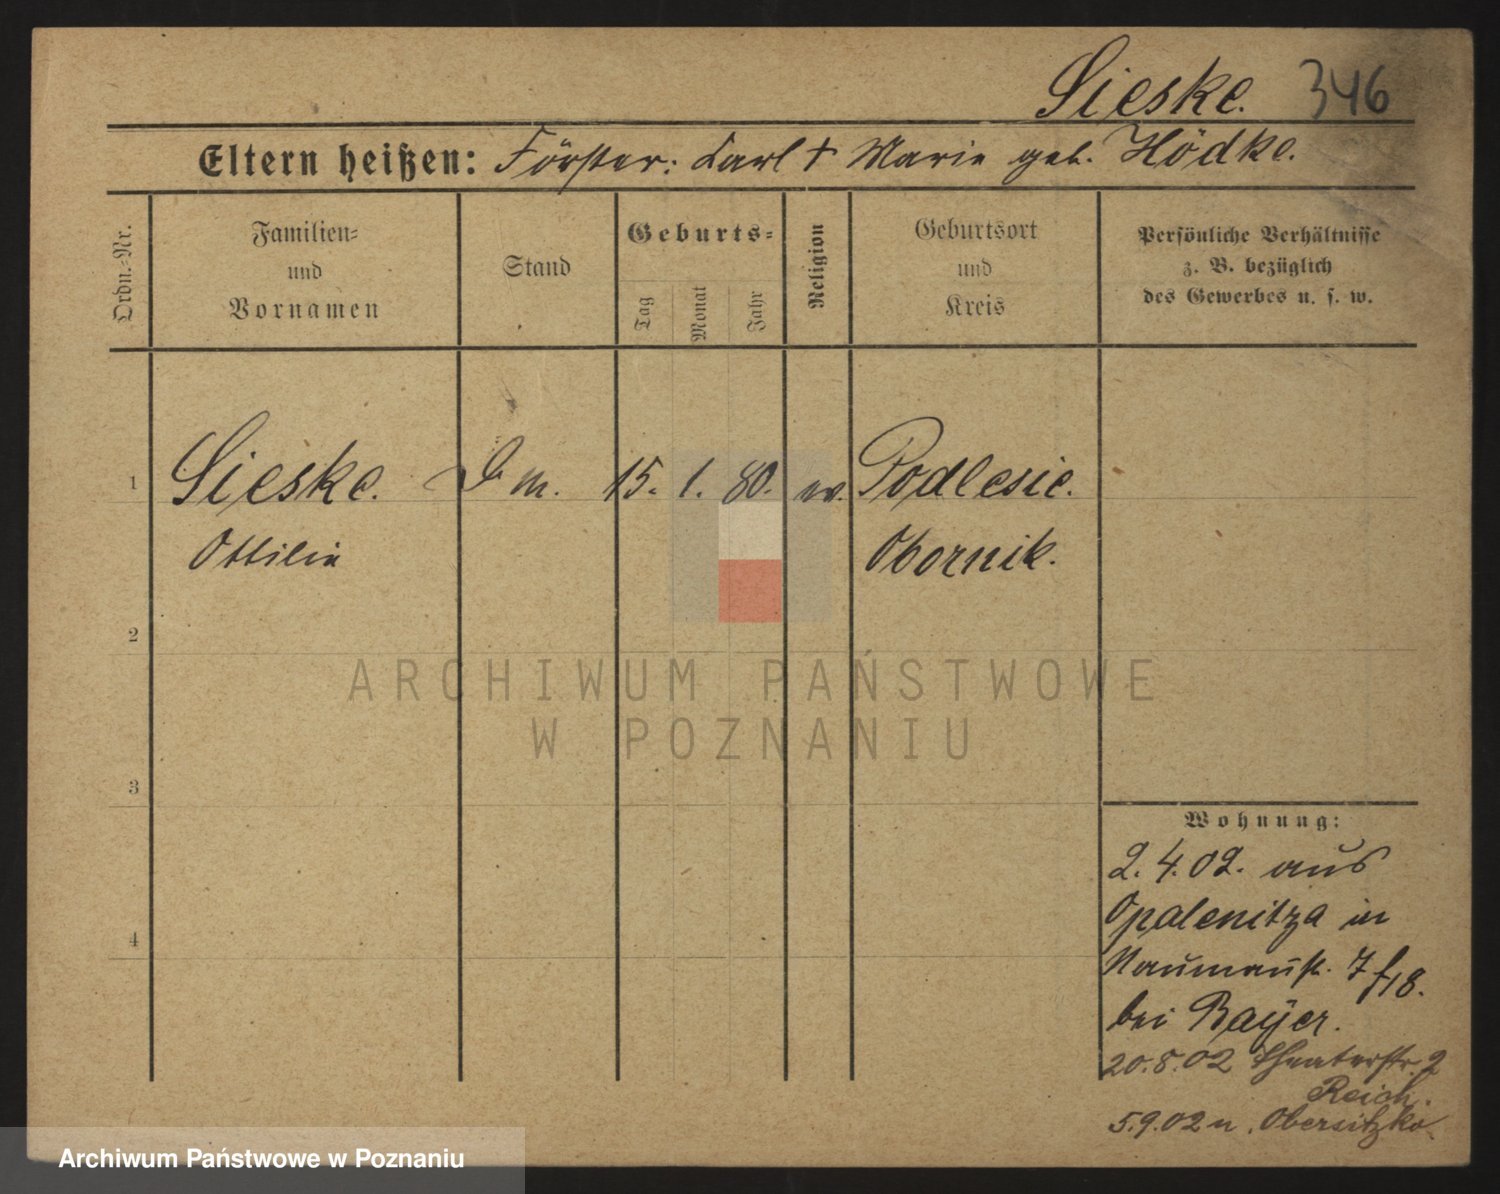 Sieske. 346
Eltern heißen: Förster: Karl † Marie geb. Hödke.
Ordn.-Nr.
Familien-
und
Vornamen
Stand
Geburts-
Tag
Monat
Jahr
Religion
Geburtsort
und
Kreis
Persönliche Verhältnisse
z. B. bezüglich
des Gewerbes u. s. w.
1 Sieske. D m. 15. 1. 80. ev. Podlesie.
Ottilie Obornik.
2
3
4
Wohnung:
2. 4. 02. aus
Opalenitza in
Naumannstr. 7 f18.
bei Bayer.
20.8.02 Theaterstr. 2
Reich.
5.9.02 n. Obersitzko
ARCHIWUM PAŃSTWOWE
W POZNANIU
Archiwum Państwowe w Poznaniu